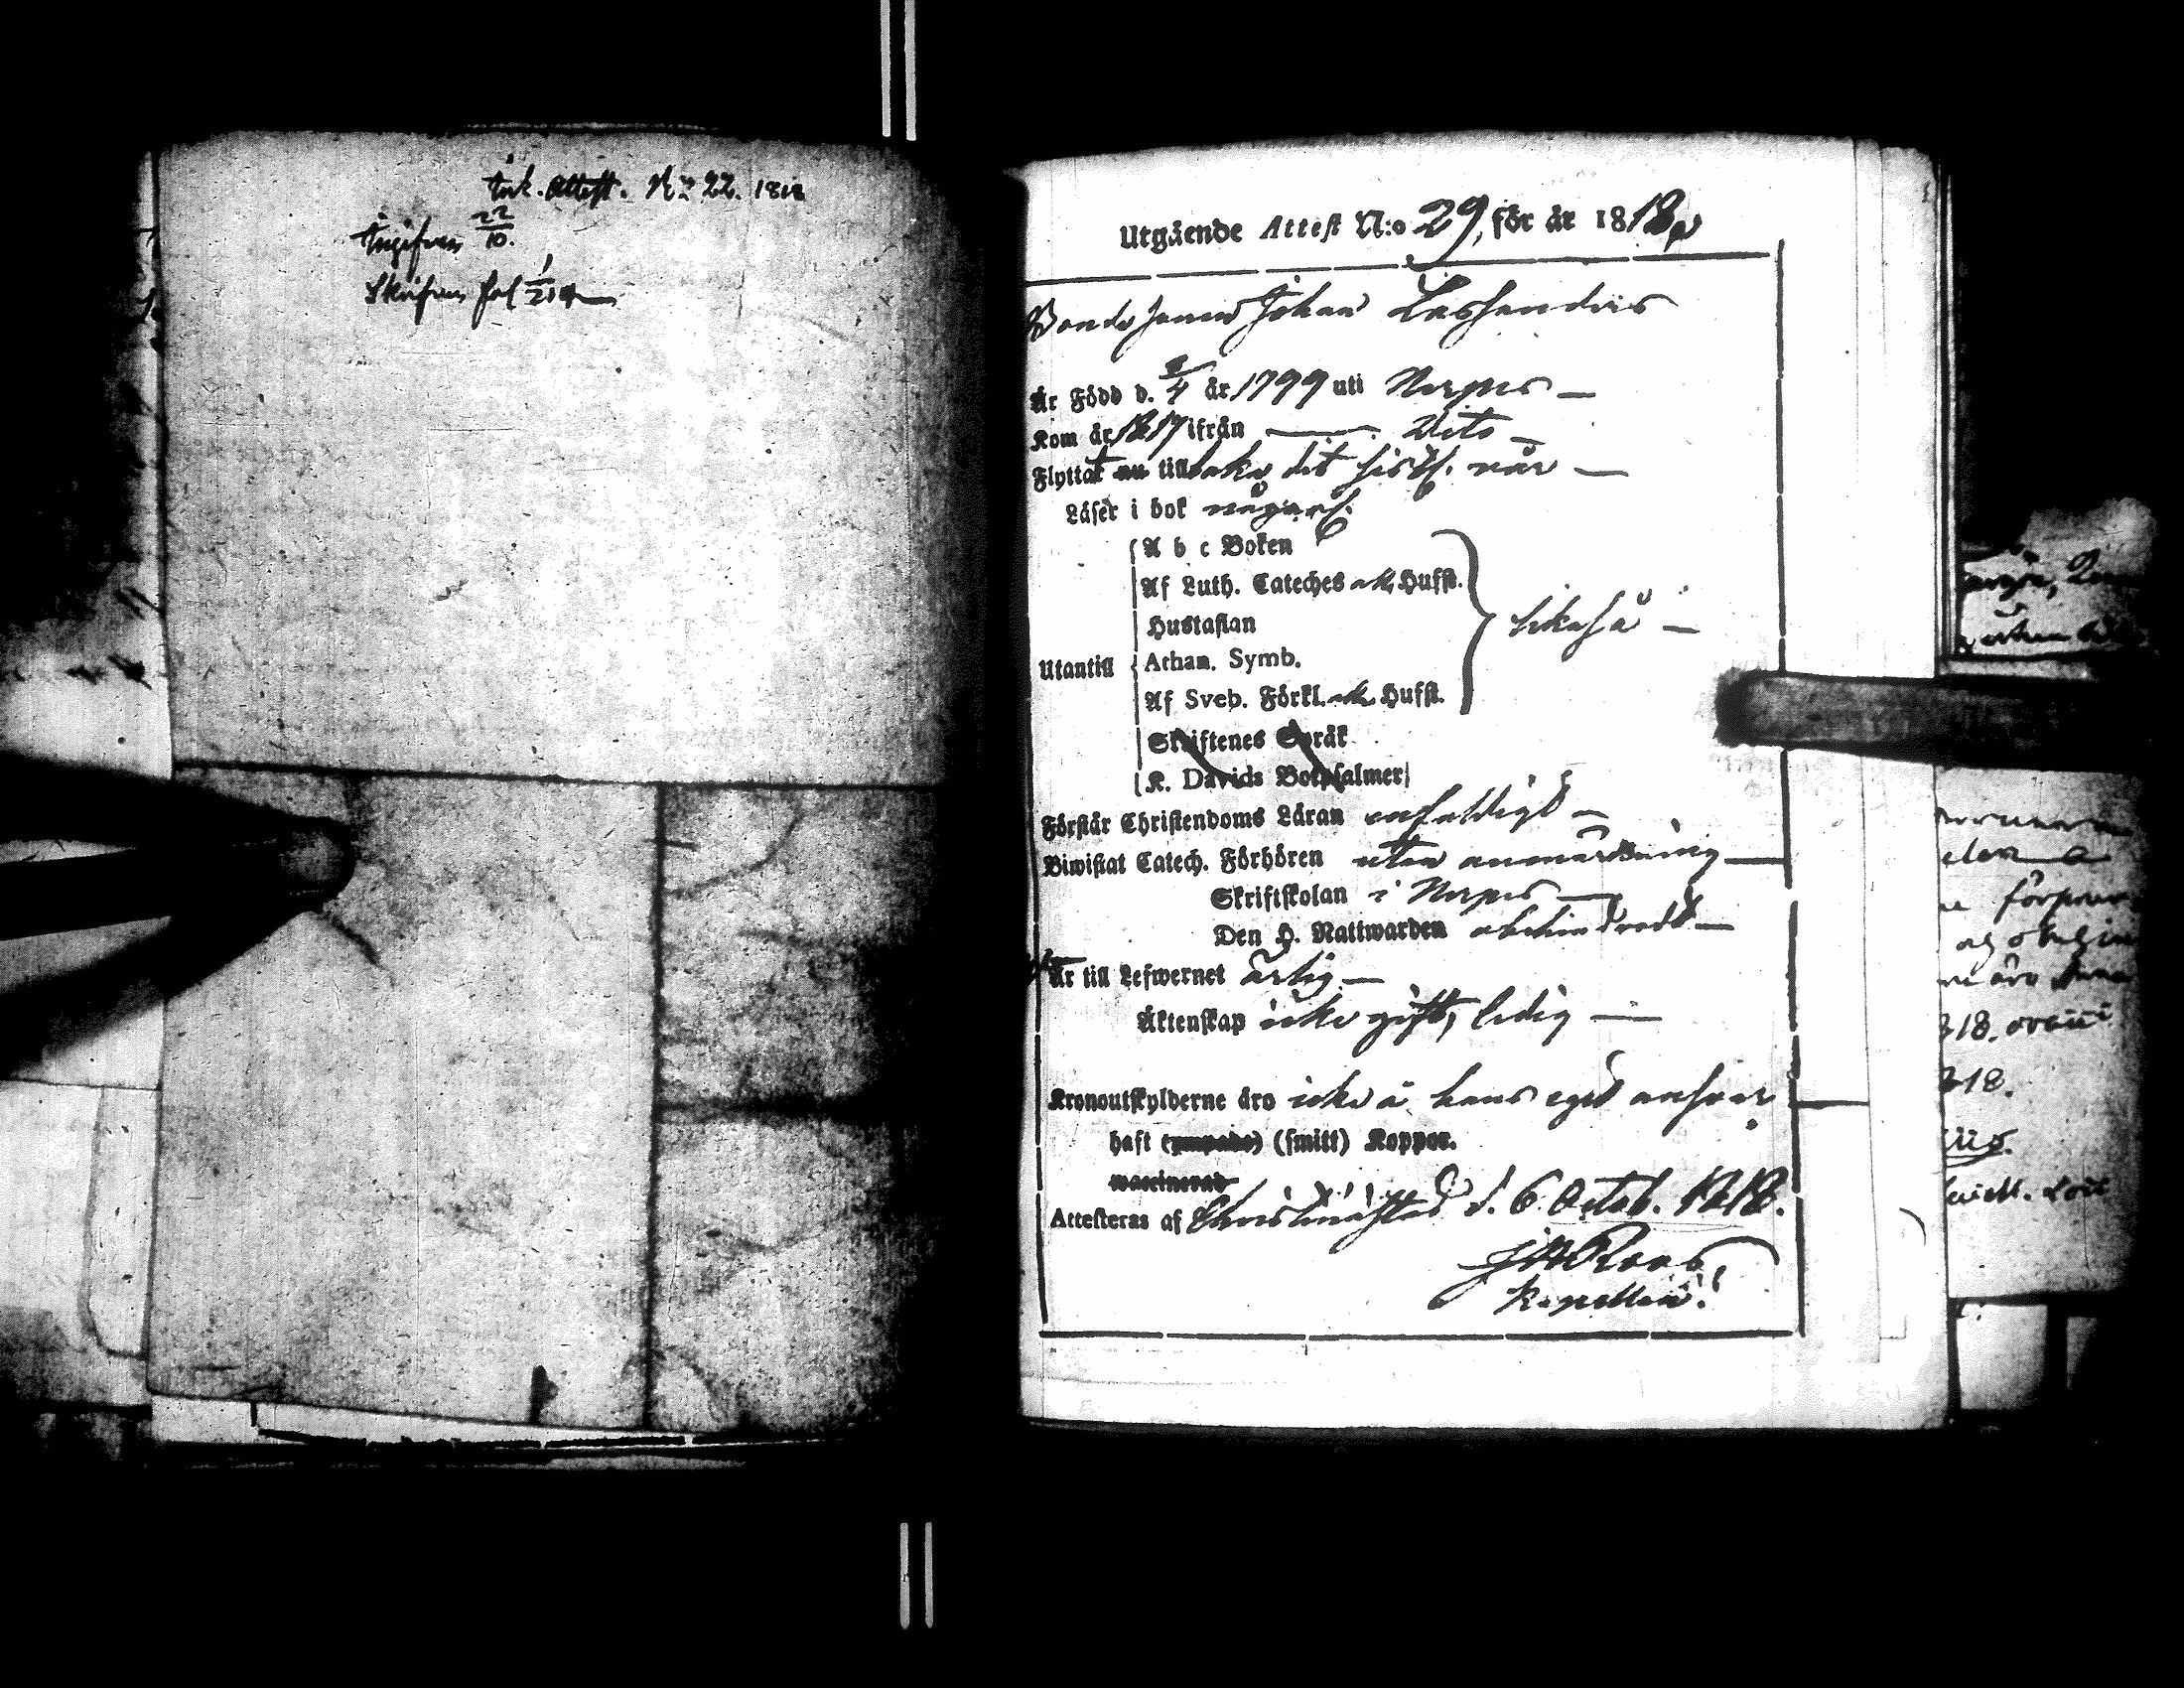 Ink. Attest. N:o 22. 1818
Ingifven 22/10.
Skrifven fol
Utgående Attest N:o 29, för år 1818,
Bondesonen Johan Lassanders
Är Född d. /4 år 1799 uti Nerpes —
Kom år 1817 ifrån — Dito —
Flyttat nu tillbaka dit sistl. vår —
Läser i bok någorl.
A b c Boken
Af Luth. Cateches alla Hufst.
Hustaflan
likaså —
Utantill
Athan. Symb.
Af Sveb. Förkl. alla Hufst.
Skriftenes Språk
K. Davids Botpsalmer
Förstår Christendoms Läran enfaldigt —
Biwistat Catech. Förhören utan anmärkning —
Skriftskolan i Nerpes —
Den H. Nattwarden obehindradt —
Är till Lefwernet ärlig. —
Äktenskap icke gift, ledig —
Kronoutskylderne äro icke å hans eget ansvar
haft (smitt) Koppor.
waccinerad
Attesteras af Christinæstad d. 6 Octob. 1818.
Roos,
Kapellan.